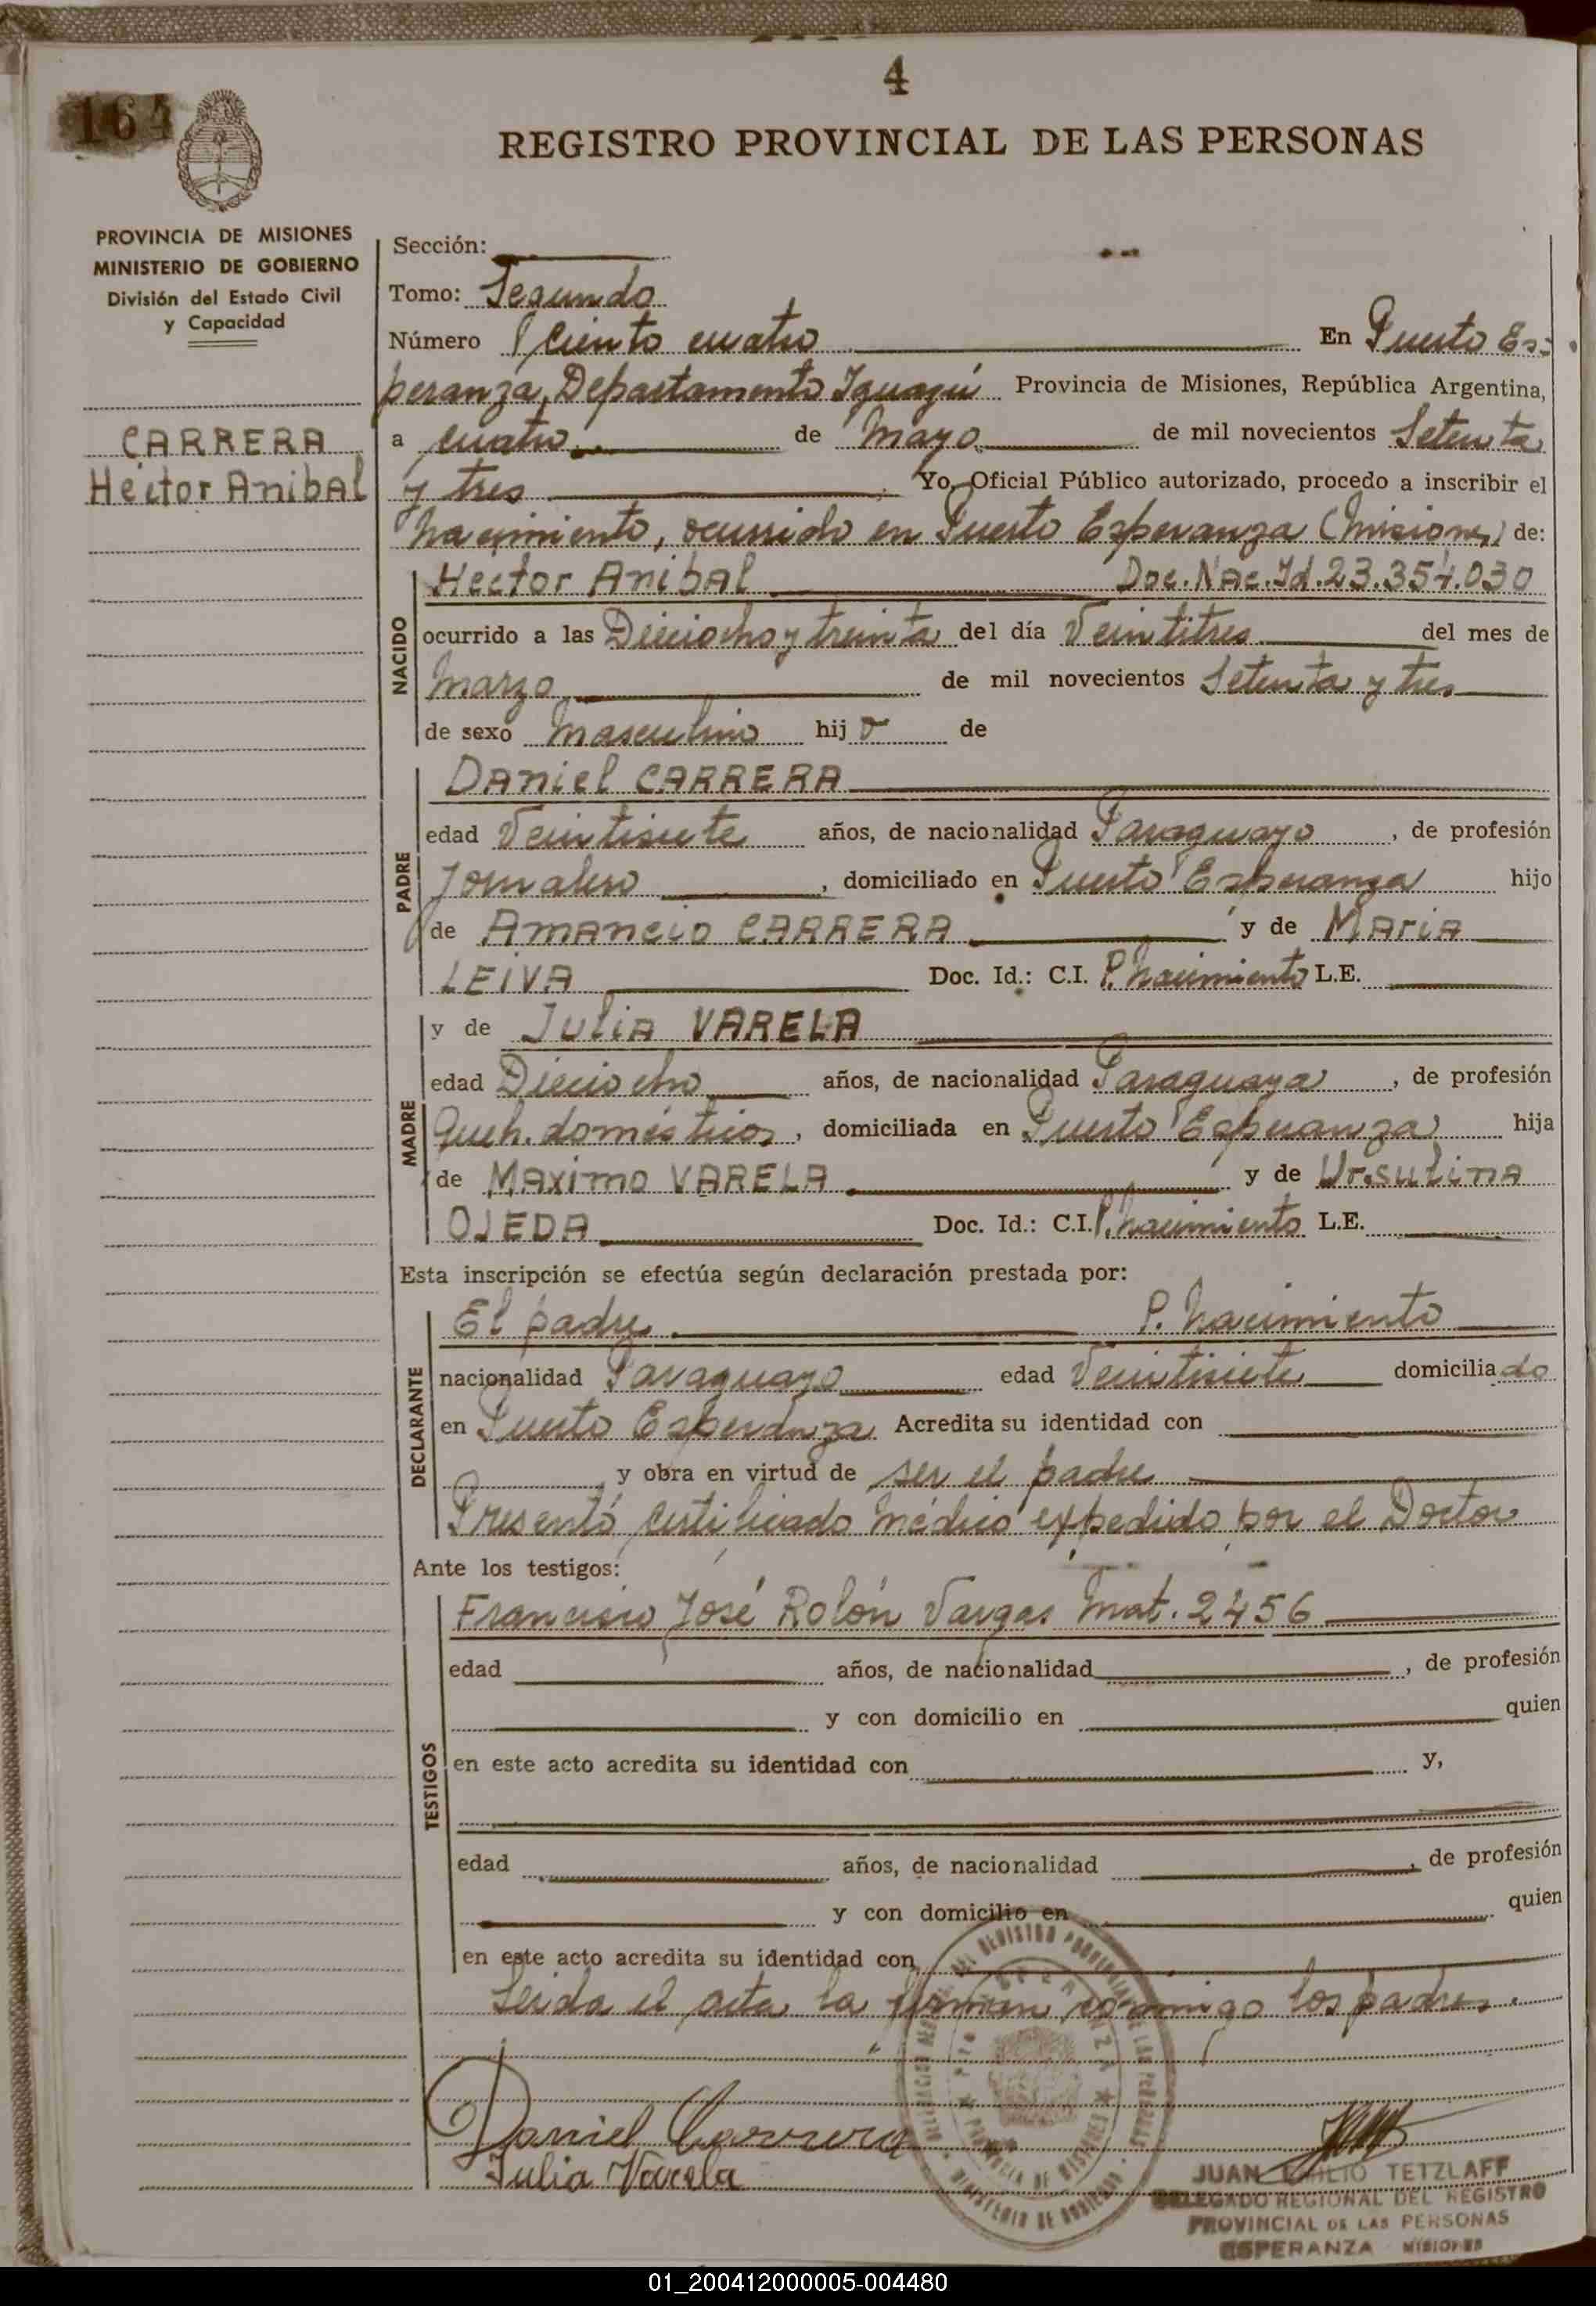 4
164
REGISTRO PROVINCIAL DE LAS PERSONAS
PROVINCIA DE MISIONES
MINISTERIO DE GOBIERNO
División del Estado Civil
y Capacidad
CARRERA
Héctor Anibal
Sección:
Tomo: Segundo
Número Ciento cuatro En Puerto Es-
peranza, Departamento Iguazú Provincia de Misiones, República Argentina,
a cuatro de Mayo de mil novecientos Setenta
y tres Yo, Oficial Público autorizado, procedo a inscribir el
nacimiento, ocurrido en Puerto Esperanza (Misiones) de:
NACIDO
Héctor Anibal Doc. Nac. Id. 23.354.030
ocurrido a las Dieciocho y treinta del día Veintitres del mes de
Marzo de mil novecientos Setenta y tres
de sexo Masculino hijo de
PADRE
Daniel CARRERA
edad Veintisiete años, de nacionalidad Paraguayo, de profesión
Jornalero, domiciliado en Puerto Esperanza hijo
de Amancio CARRERA y de Maria
LEIVA Doc. Id.: C.I. P. Nacimiento L.E.
MADRE
y de Julia VARELA
edad Dieciocho años, de nacionalidad Paraguaya, de profesión
Queh. domésticos, domiciliada en Puerto Esperanza hija
de Maximo VARELA y de Ursulina
OJEDA Doc. Id.: C.I. P. Nacimiento L.E.
Esta inscripción se efectúa según declaración prestada por:
DECLARANTE
El padre P. Nacimiento
nacionalidad Paraguayo edad Veintisiete domiciliado
en Puerto Esperanza Acredita su identidad con
y obra en virtud de ser el padre
Presentó certificado médico expedido por el Doctor
Ante los testigos:
TESTIGOS
Francisco José Rolón Vargas Mat. 2456
edad años, de nacionalidad, de profesión
y con domicilio en quien
en este acto acredita su identidad con y,
edad años, de nacionalidad, de profesión
y con domicilio en quien
en este acto acredita su identidad con
Leida el acta la firman conmigo los padres.
Daniel Carrera
Julia Varela
JUAN EMILIO TETZLAFF
DELEGADO REGIONAL DEL REGISTRO
PROVINCIAL DE LAS PERSONAS
ESPERANZA MISIONES
01_200412000005-004480